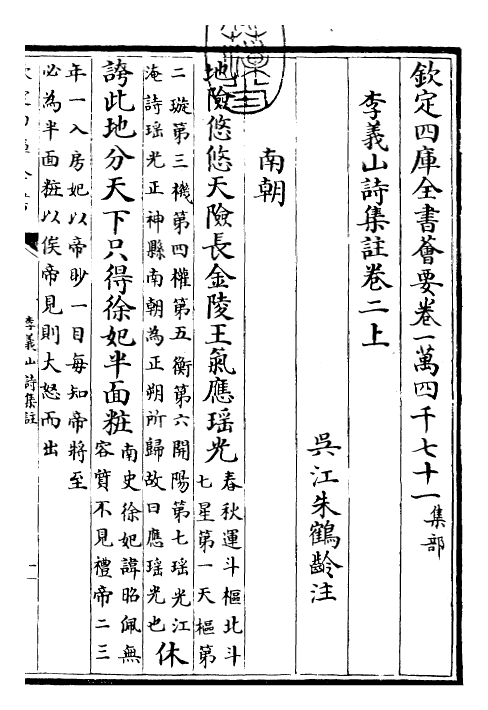 欽定四庫全書薈要卷一萬四千七十一集部
李義山詩集註卷二上
吳江朱鶴齡注
南朝
地險悠悠天險長金陵王氣應瑤光春秋運斗樞北斗
七星第一天樞第
二璇第三機第四權第五衡第六開陽第七瑤光江
淹詩瑤光正神縣南朝為正朔所歸故曰應瑤光也休
誇此地分天下只得徐妃半面粧南史徐妃諱昭佩無
容質不見禮帝二三
年一入房妃以帝眇一目每知帝將至
必為半面粧以俟帝見則大怒而出
李義山詩集註
一